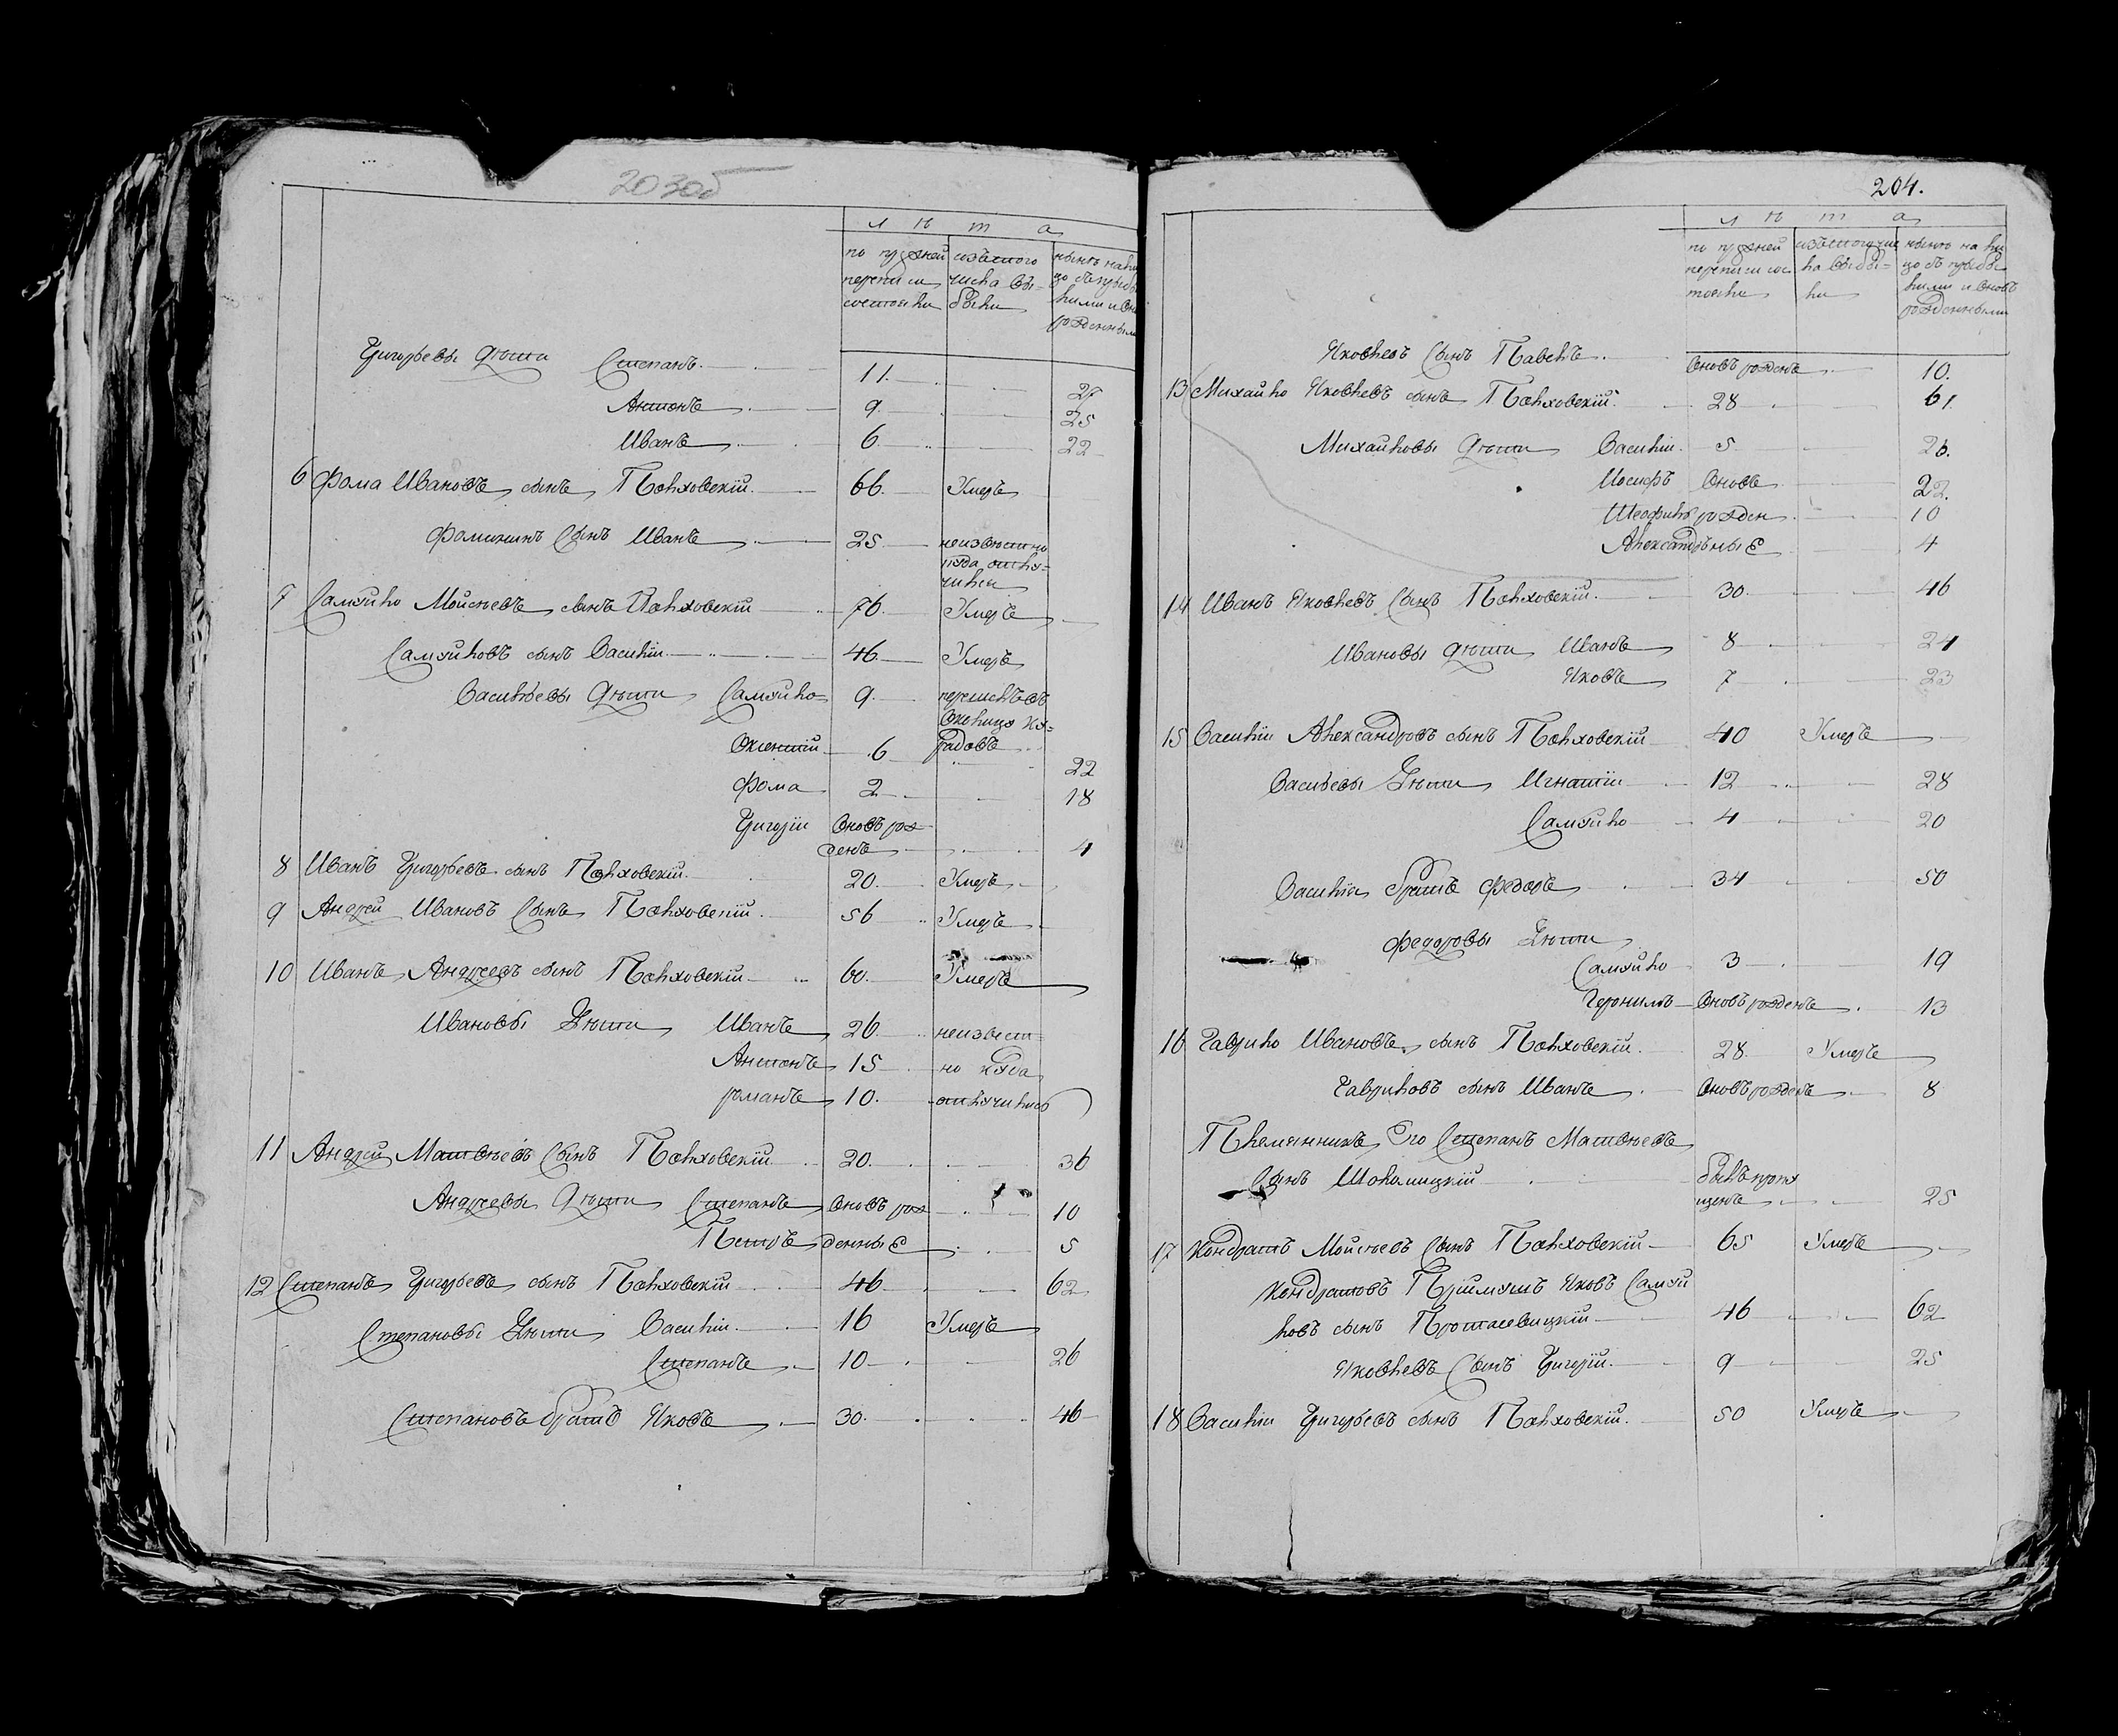 203об
лѣта
по прежней переписи состояли
изъ того числа выбыли
нынѣ на лицо съ прыбылими и вновь рожденными
Григорьевы дѣти Степанъ 11. 27
Антонъ 9. 25
Иванъ 6. 22
6 Фома Ивановъ сынъ Полховскій 66. Умеръ
Фомининъ Сынъ Иванъ 25 неизвѣстно
куда отлу=
чился
7 Самуйло Мойсѣевъ сынъ Полховскій 76. Умеръ
Самуйловъ сынъ Василій 46 Умеръ
Васильевы дѣти Самуйло 9
6
22
Фома 2 18
Григорій Вновь рож
денъ 4
8 Иванъ Григорьевъ сынъ Полховскій 20. Умеръ
9 Андрей Ивановъ Сынъ Полховскій 56 Умеръ
10 Иванъ Андреевъ сынъ Полховскій 60. Умеръ
Ивановы Дѣти Иванъ 26. неизвест=
Антонъ 15 но куда
романъ 10. отлучились
11 Андрей Матвѣевъ Сынъ Полховскій 20. 36
Андреевы Дѣти Степанъ Вновь рож 10
Петръ денные 5
12 Степанъ Григорьевъ сынъ Полховскій 46 62
Степановы Дѣти Василій 16 Умеръ
Степанъ 10 26
Степановъ братъ Яковъ 30. 46
204.
лѣта
по прежней переписи состояли
изъ того числа выбыли
нынѣ на лицо съ прыбылими и вновь рожденными
Яковлевъ Сынъ Павелъ Вновь рожденъ 10.
13 Михайло Яковлевъ сынъ Полховскій 28 61
Михайловы дѣти Василій 5 26.
Иосифъ Вновь 22.
рожден 10
Александръ ные 4
14 Иванъ Яковлевъ Сынъ Полховскій 30. 46
Ивановы дѣти Иванъ 8 24
Яковъ 7 23
15 Василій Александровъ сынъ Полховскій 40 Умеръ
Васильевы Дѣти Игнатій 12 28
Самуйло 4 20
Василія братъ Федоръ 34 50
Федоровы Дѣти
Самуйло 3 19
Вновь рожденъ 13
16 Гаврило Ивановъ сынъ Полховскій 28. Умеръ
Гавриловъ сынъ Иванъ Вновь рожденъ 8
Племянникъ Его Степанъ Матвѣевъ
Сынъ былъ пропу
щенъ 25
17 Кондратъ Мойсѣевъ Сынъ Полховскій 65 Умеръ
Кондратовъ Пріймытъ Яковъ Самуй
ловъ сынъ Протасевицкій 46 62
Яковлевъ Сынъ Григорій 9 25
18 Василій Григорьевъ сынъ Полховскій 50 Умеръ